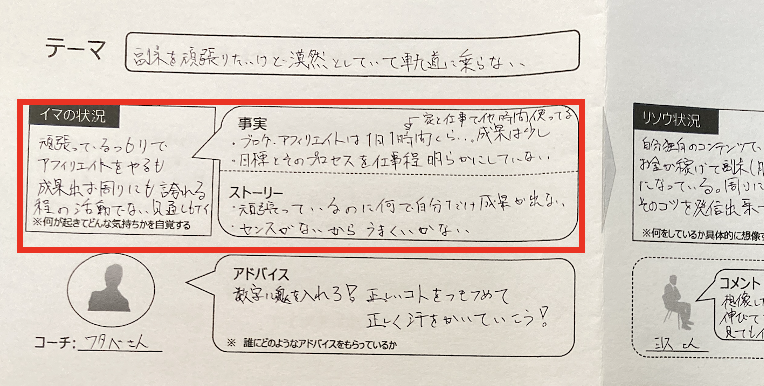 テーマ
副業を頑張りたいけど漠然としていて軌道に乗らない、
イマの状況
頑張っているつもりで
アフィリエイトをやるも
成果出ず周りにも誇れる
程の活動でない。見通しもナイ
※何が起きてどんな気持ちかを自覚する
事実
家と仕事で他時間使ってる
・ブログ・アフィリエイトは1日1時間くらい…成果は少し
・目標とそのプロセスを仕事程明らかにしていない
ストーリー
・頑張っているのに何で自分だけ成果が出ない
・センスがないからうまくいかない
アドバイス
数字に魂を入れろ! 正しいコトをつきつめて
正しく汗をかいていこう!
※ 誰にどのようなアドバイスをもらっているか
コーチ:
さん
リソウ状況
自分独自のコンテンツで、
お金が稼げて副業し
になっている。周りに
そのコツを発信出来
※何をしているか具体的に想像す
コメント
想像し
伸びて
見ても
さん